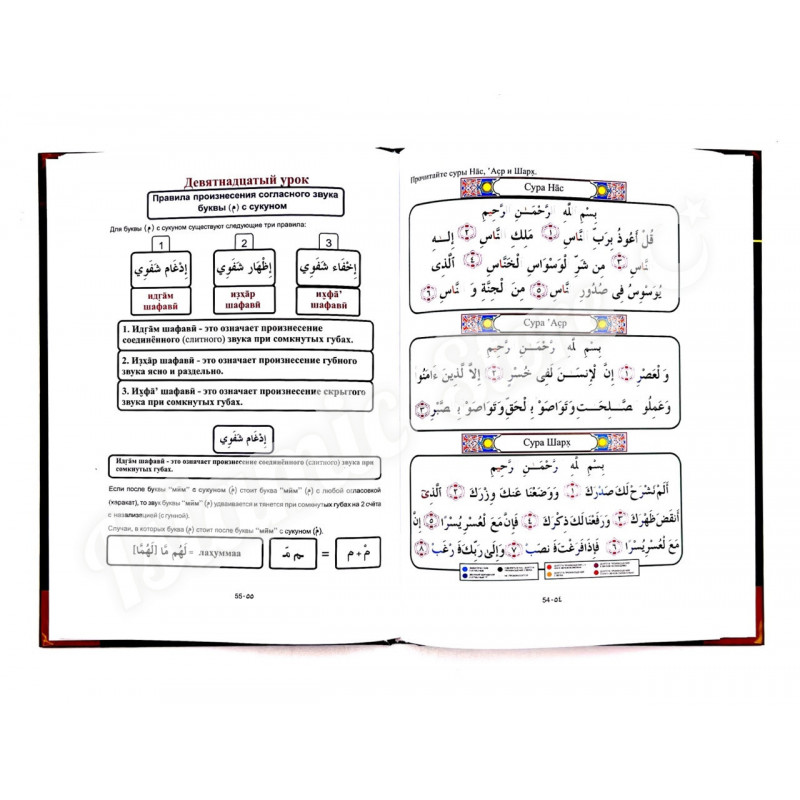 Девятнадцатый урок
Правила произнесения согласного звука
буквы (م) с сукуном
Для буквы (م) с сукуном существуют следующие три правила:
1 2 3
إِدْغَام شَفَوِي إِظْهَار شَفَوِي إِخْفَاء شَفَوِي
идг̣а̄м шафавӣ из̣ха̄р шафавӣ их̮фа̄' шафавӣ
1. Идг̣а̄м шафавӣ - это означает произнесение
соединённого (слитного) звука при сомкнутых губах.
2. Из̣ха̄р шафавӣ - это означает произнесение губного
звука ясно и раздельно.
3. Их̮фа̄' шафавӣ - это означает произнесение скрытого
звука при сомкнутых губах.
إِدْغَام شَفَوِي
Идг̣а̄м шафавӣ - это означает произнесение соединённого (слитного) звука при
сомкнутых губах.
Если после буквы "мӣм" с сукуном (مْ) стоит буква "мӣм" (م) с любой огласовкой
(харакат), то звук буквы "мӣм" (م) удваивается и тянется при сомкнутых губах на 2 счёта
с назализацией (с гунной).
Случаи, в которых буква (م) стоит после буквы "мӣм" с сукуном (مْ).
[لَهُمَّا] لَهُمْ مَّا = лахуммаа
م مّ = مْ + م
55-٥٥
Прочитайте суры На̄с, 'Аср и Шарх̣.
Сура На̄с
بِسْمِ للَّهِ رَّحْمَـٰنِ رَّحِيمِ
قُلْ أَعُوذُ بِرَبِّ نَّاسِ ١ مَلِكِ نَّاسِ ٢ إِلَـٰهِ
نَّاسِ ٣ مِن شَرِّ لْوَسْوَاسِ لْخَنَّاسِ ٤ لَّذِى
يُوَسْوِسُ فِى صُدُورِ نَّاسِ ٥ مِنَ لْجِنَّةِ وَ نَّاسِ ٦
Сура 'Аср
بِسْمِ للَّهِ رَّحْمَـٰنِ رَّحِيمِ
وَ لْعَصْرِ ١ إِنَّ لْإِنسَـٰنَ لَفِى خُسْرٍ ٢ إِلَّا لَّذِينَ ءَامَنُوا
وَعَمِلُو صَّـٰلِحَـٰتِ وَتَوَاصَوْ بِ لْحَقِّ وَتَوَاصَوْ بِ صَّبْرِ ٣
Сура Шарх̣
بِسْمِ للَّهِ رَّحْمَـٰنِ رَّحِيمِ
أَلَمْ نَشْرَحْ لَكَ صَدْرَكَ ١ وَوَضَعْنَا عَنكَ وِزْرَكَ ٢ لَّذِىٓ
أَنقَضَ ظَهْرَكَ ٣ وَرَفَعْنَا لَكَ ذِكْرَكَ ٤ فَإِنَّ مَعَ لْعُسْرِ يُسْرًا ٥ إِنَّ
مَعَ لْعُسْرِ يُسْرًا ٦ فَإِذَا فَرَغْتَ فَ نصَبْ ٧ وَإِلَىٰ رَبِّكَ فَ رْغَب ٨
54-٥٤